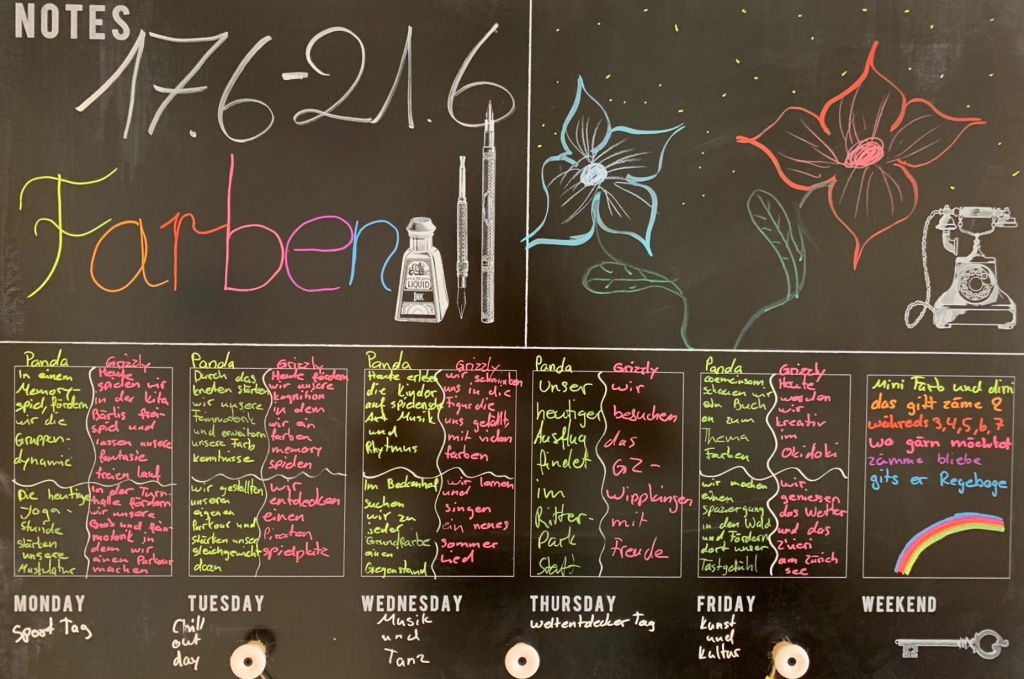 NOTES
17.6-21.6
Farben
LIQUID
INK
Panda
In einem
Memory-
spiel, fördern
wir die
Gruppen-
dynamic
Die heutige
Yoga-
stunde
stärken
unsere
Muskulatur
Grizzly
Heute
spielen wir
in der Kita
Bärlis frei-
spiel und
lassen unsere
fantasie
freien lauf
In der Turn-
halle fördern
wir unsere
Grob und fein-
motorik in
dem wir
einen Parkour
machen
MONDAY
Sport Tag
Panda
Durch das
kneten stärken
wir unsere
Feinmotorik
und erweitern
unsere Farb
kenntnisse
wir gestallten
unseren
eigenen
Parkour und
stärken unser
gleichgewicht
dazu
Grizzly
Heute fördern
wir unsere
kognition
in dem
wir ein
farben
memory
spielen
wir
entdecken
einen
Piraten
spielplatz
TUESDAY
Chill
out
day
Panda
Heute erleben
die Kinder
auf spielerische
Art Musik
und
Rhytmus
Im Beckenhof
suchen
wir zu
jeder
Grundfarbe
einen
Gegenstand
Grizzly
wir schminken
uns in die
Figur die
uns gefällt
mit vielen
farben
wir lernen
und
singen
ein neues
Sommer
Lied
WEDNESDAY
Musik
und
Tanz
Panda
Unser
heutiger
Ausflug
findet
im
Ritter-
Park
Statt
Grizzly
wir
besuchen
das
GZ-
Wippkingen
mit
Freude
THURSDAY
weltentdecker Tag
Panda
Gemeinsam
schauen wir
ein Buch
an zum
Thema
Farben
wir machen
einen
Spaziergang
in den Wald
und fördern
dort unser
Tastgefühl
Grizzly
Heute
werden
wir
kreativ
im
Okidoki
wir
geniessen
das Wetter
und das
z'üeri
am Zürich
see
FRIDAY
kunst
und
kultur
Mini Farb und dini
das gitt zäme 2
währeds 3,4,5,6,7
wo gärn möchtet
zämme bliebe
gits er Regeboge
WEEKEND